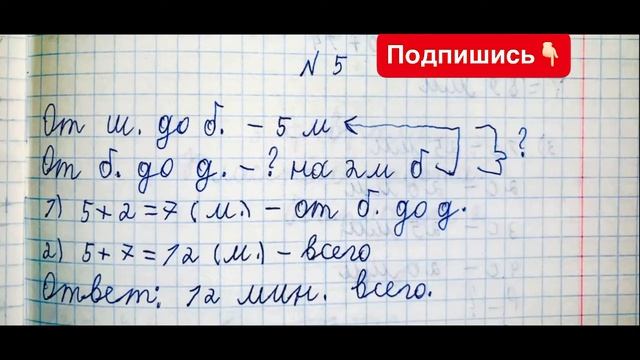 Подпишись👇🏻
N 5
От ш. до б. - 5 м ?
От б. до д. - ? на 2м б
1) 5+2=7 (м.) - от б. до д.
2) 5+7=12 (м.) - всего
Ответ: 12 мин. всего.